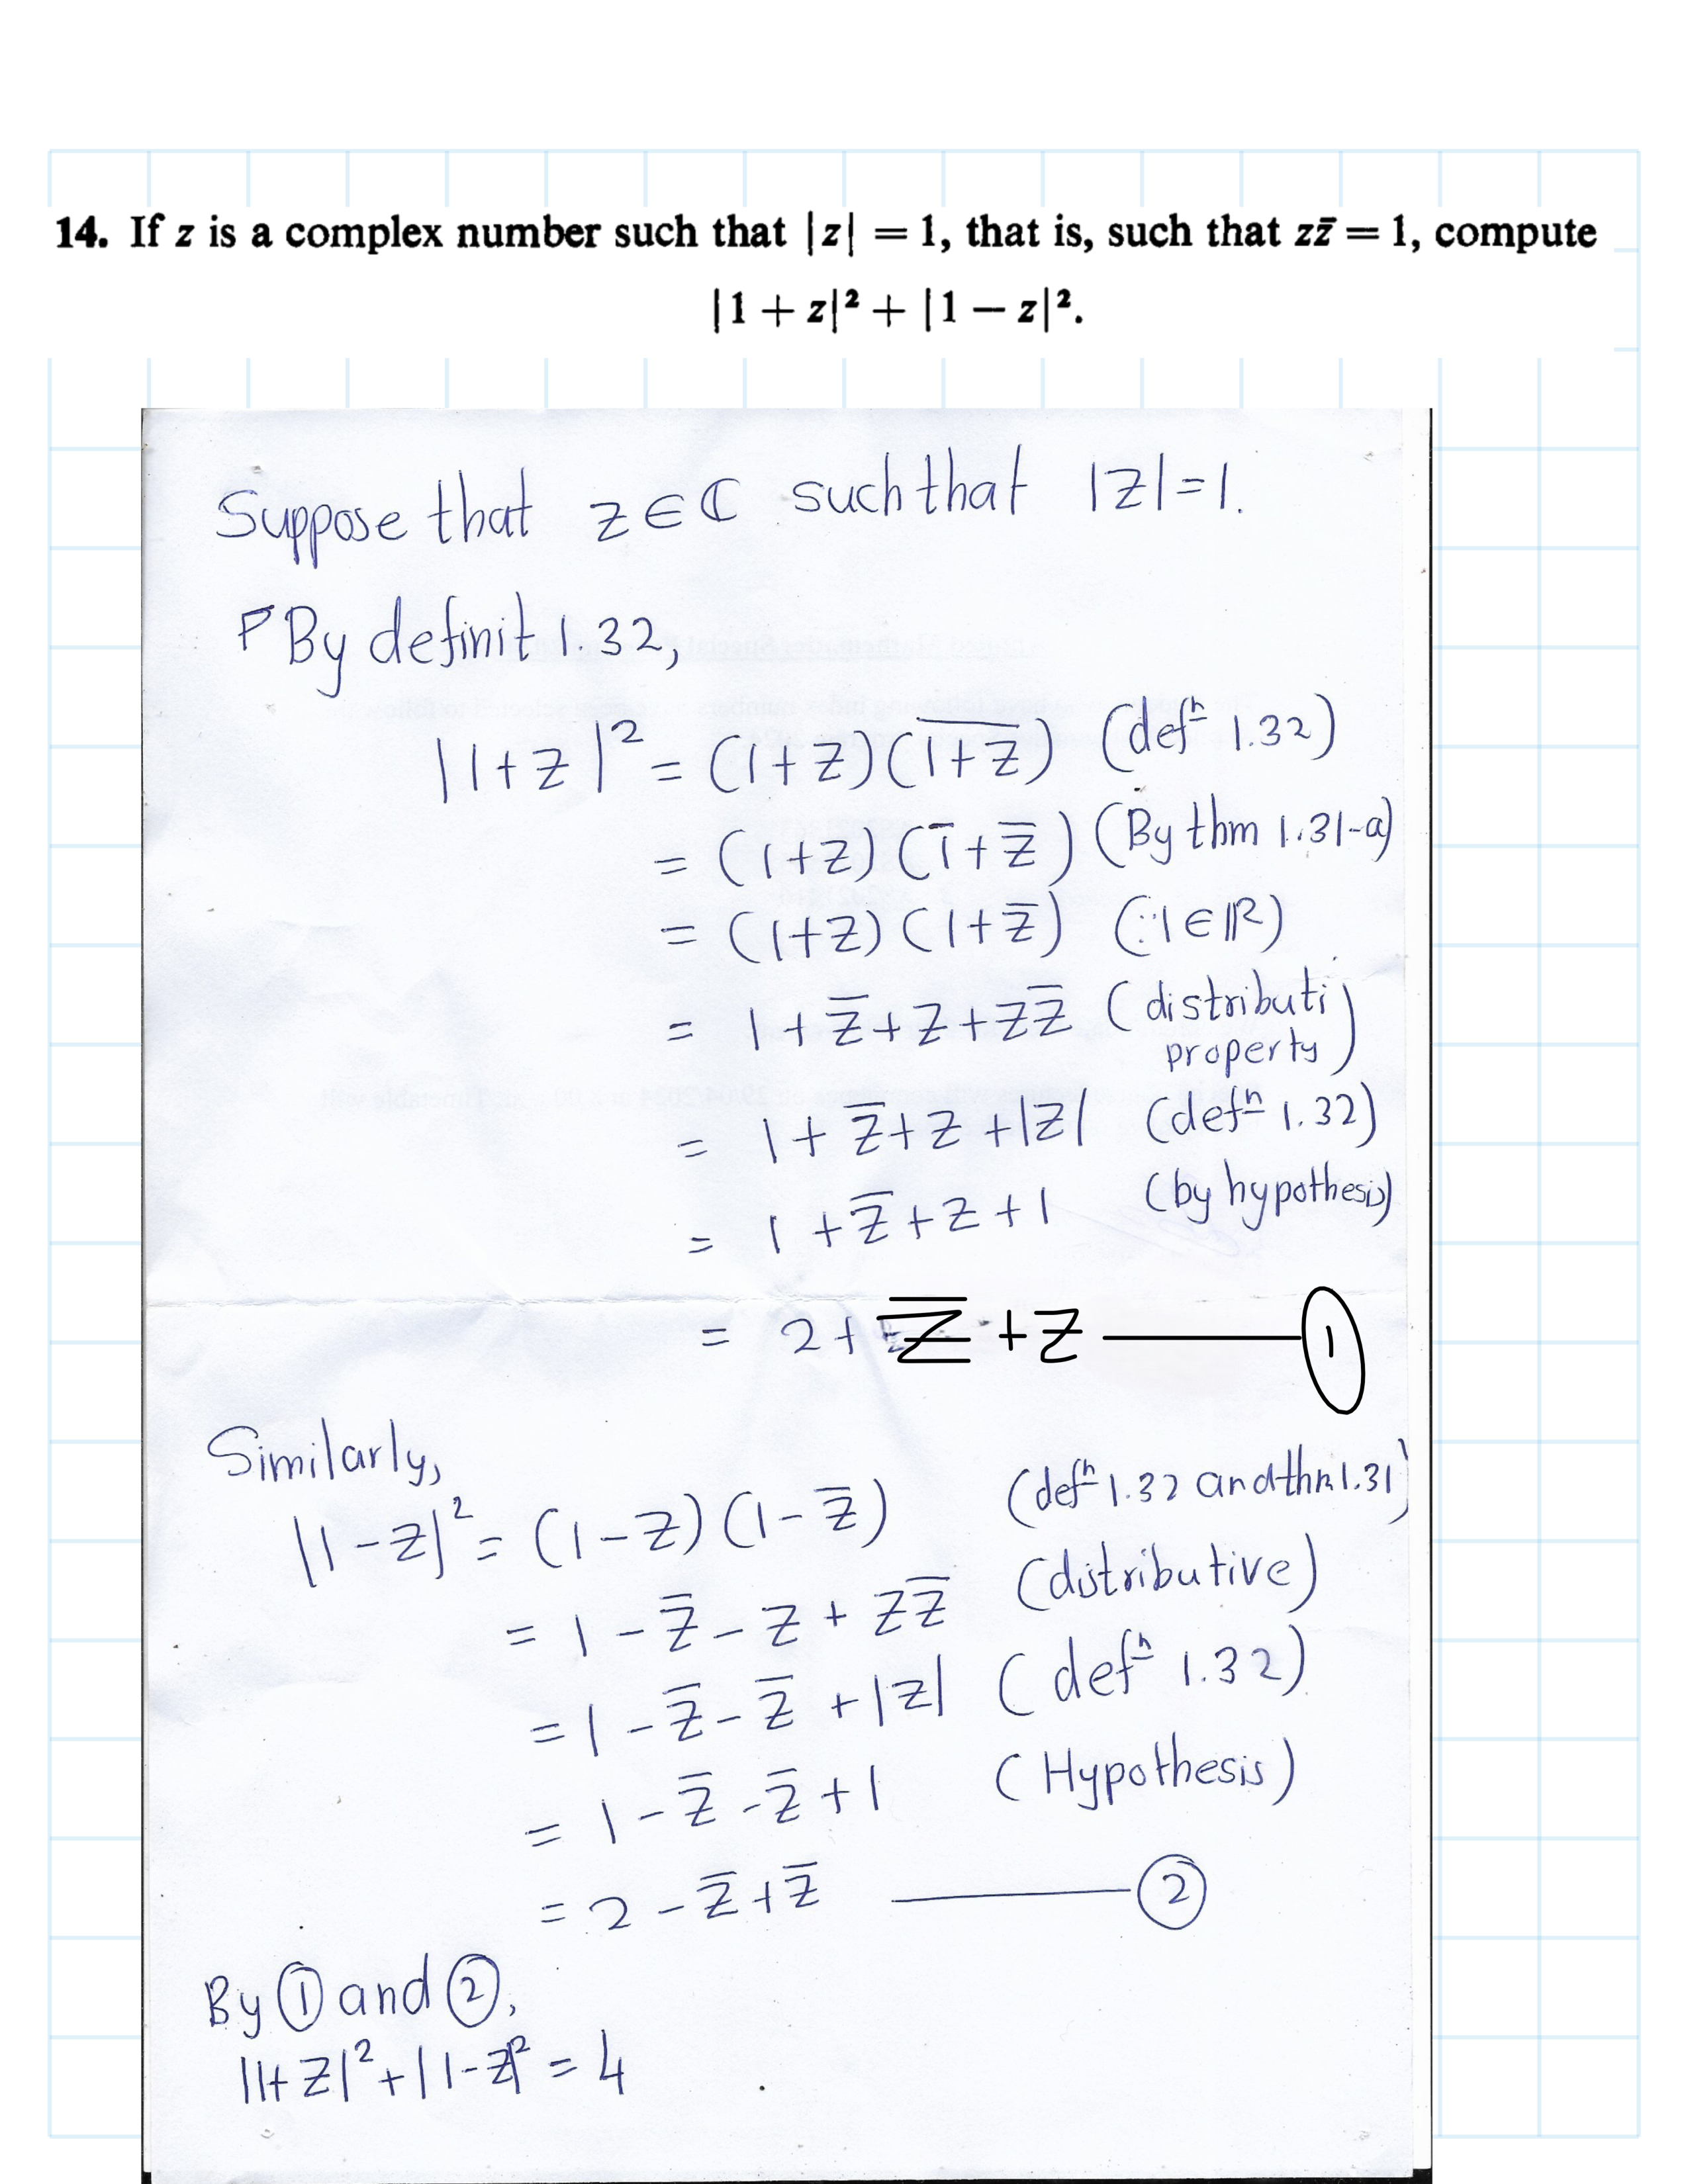 14. If z is a complex number such that |z| = 1, that is, such that zz̄ = 1, compute
|1 + z|² + |1 − z|².
Suppose that z ∈ ℂ such that |z| = 1.
By definit 1.32,
|1+z|² = (1+z)(\overline{1+z}) (defⁿ 1.32)
= (1+z)(1̄+z̄) (By thm 1.31-a)
= (1+z)(1+z̄) (∵ 1 ∈ ℝ)
= 1+z̄+z+zz̄ (distributi
property)
= 1+z̄+z+|z| (defⁿ 1.32)
= 1+z̄+z+1 (by hypothesis)
= 2+z̄+z —— ①
Similarly,
|1-z|² = (1-z)(1-z̄) (defⁿ 1.32 and thm 1.31)
= 1-z̄-z+zz̄ (distributive)
= 1-z̄-z̄+|z| (defⁿ 1.32)
= 1-z̄-z̄+1 (Hypothesis)
= 2-z̄+z̄ —— ②
By ① and ②,
|1+z|²+|1-z|² = 4